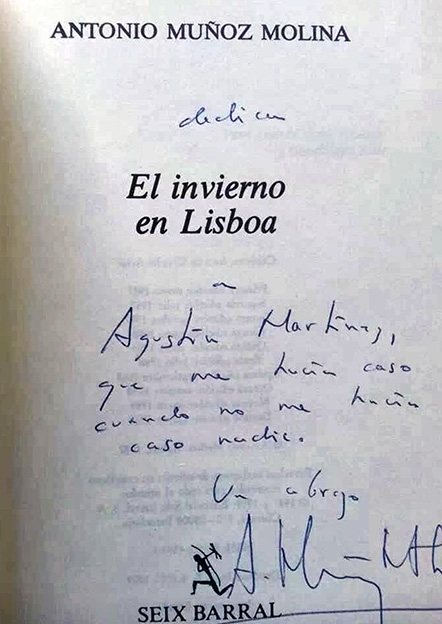 ANTONIO MUÑOZ MOLINA
dedica
El invierno
en Lisboa
a
Agustín Martínez,
que me hacía caso
cuando no me hacía
caso nadie.
Un abrazo
SEIX BARRAL